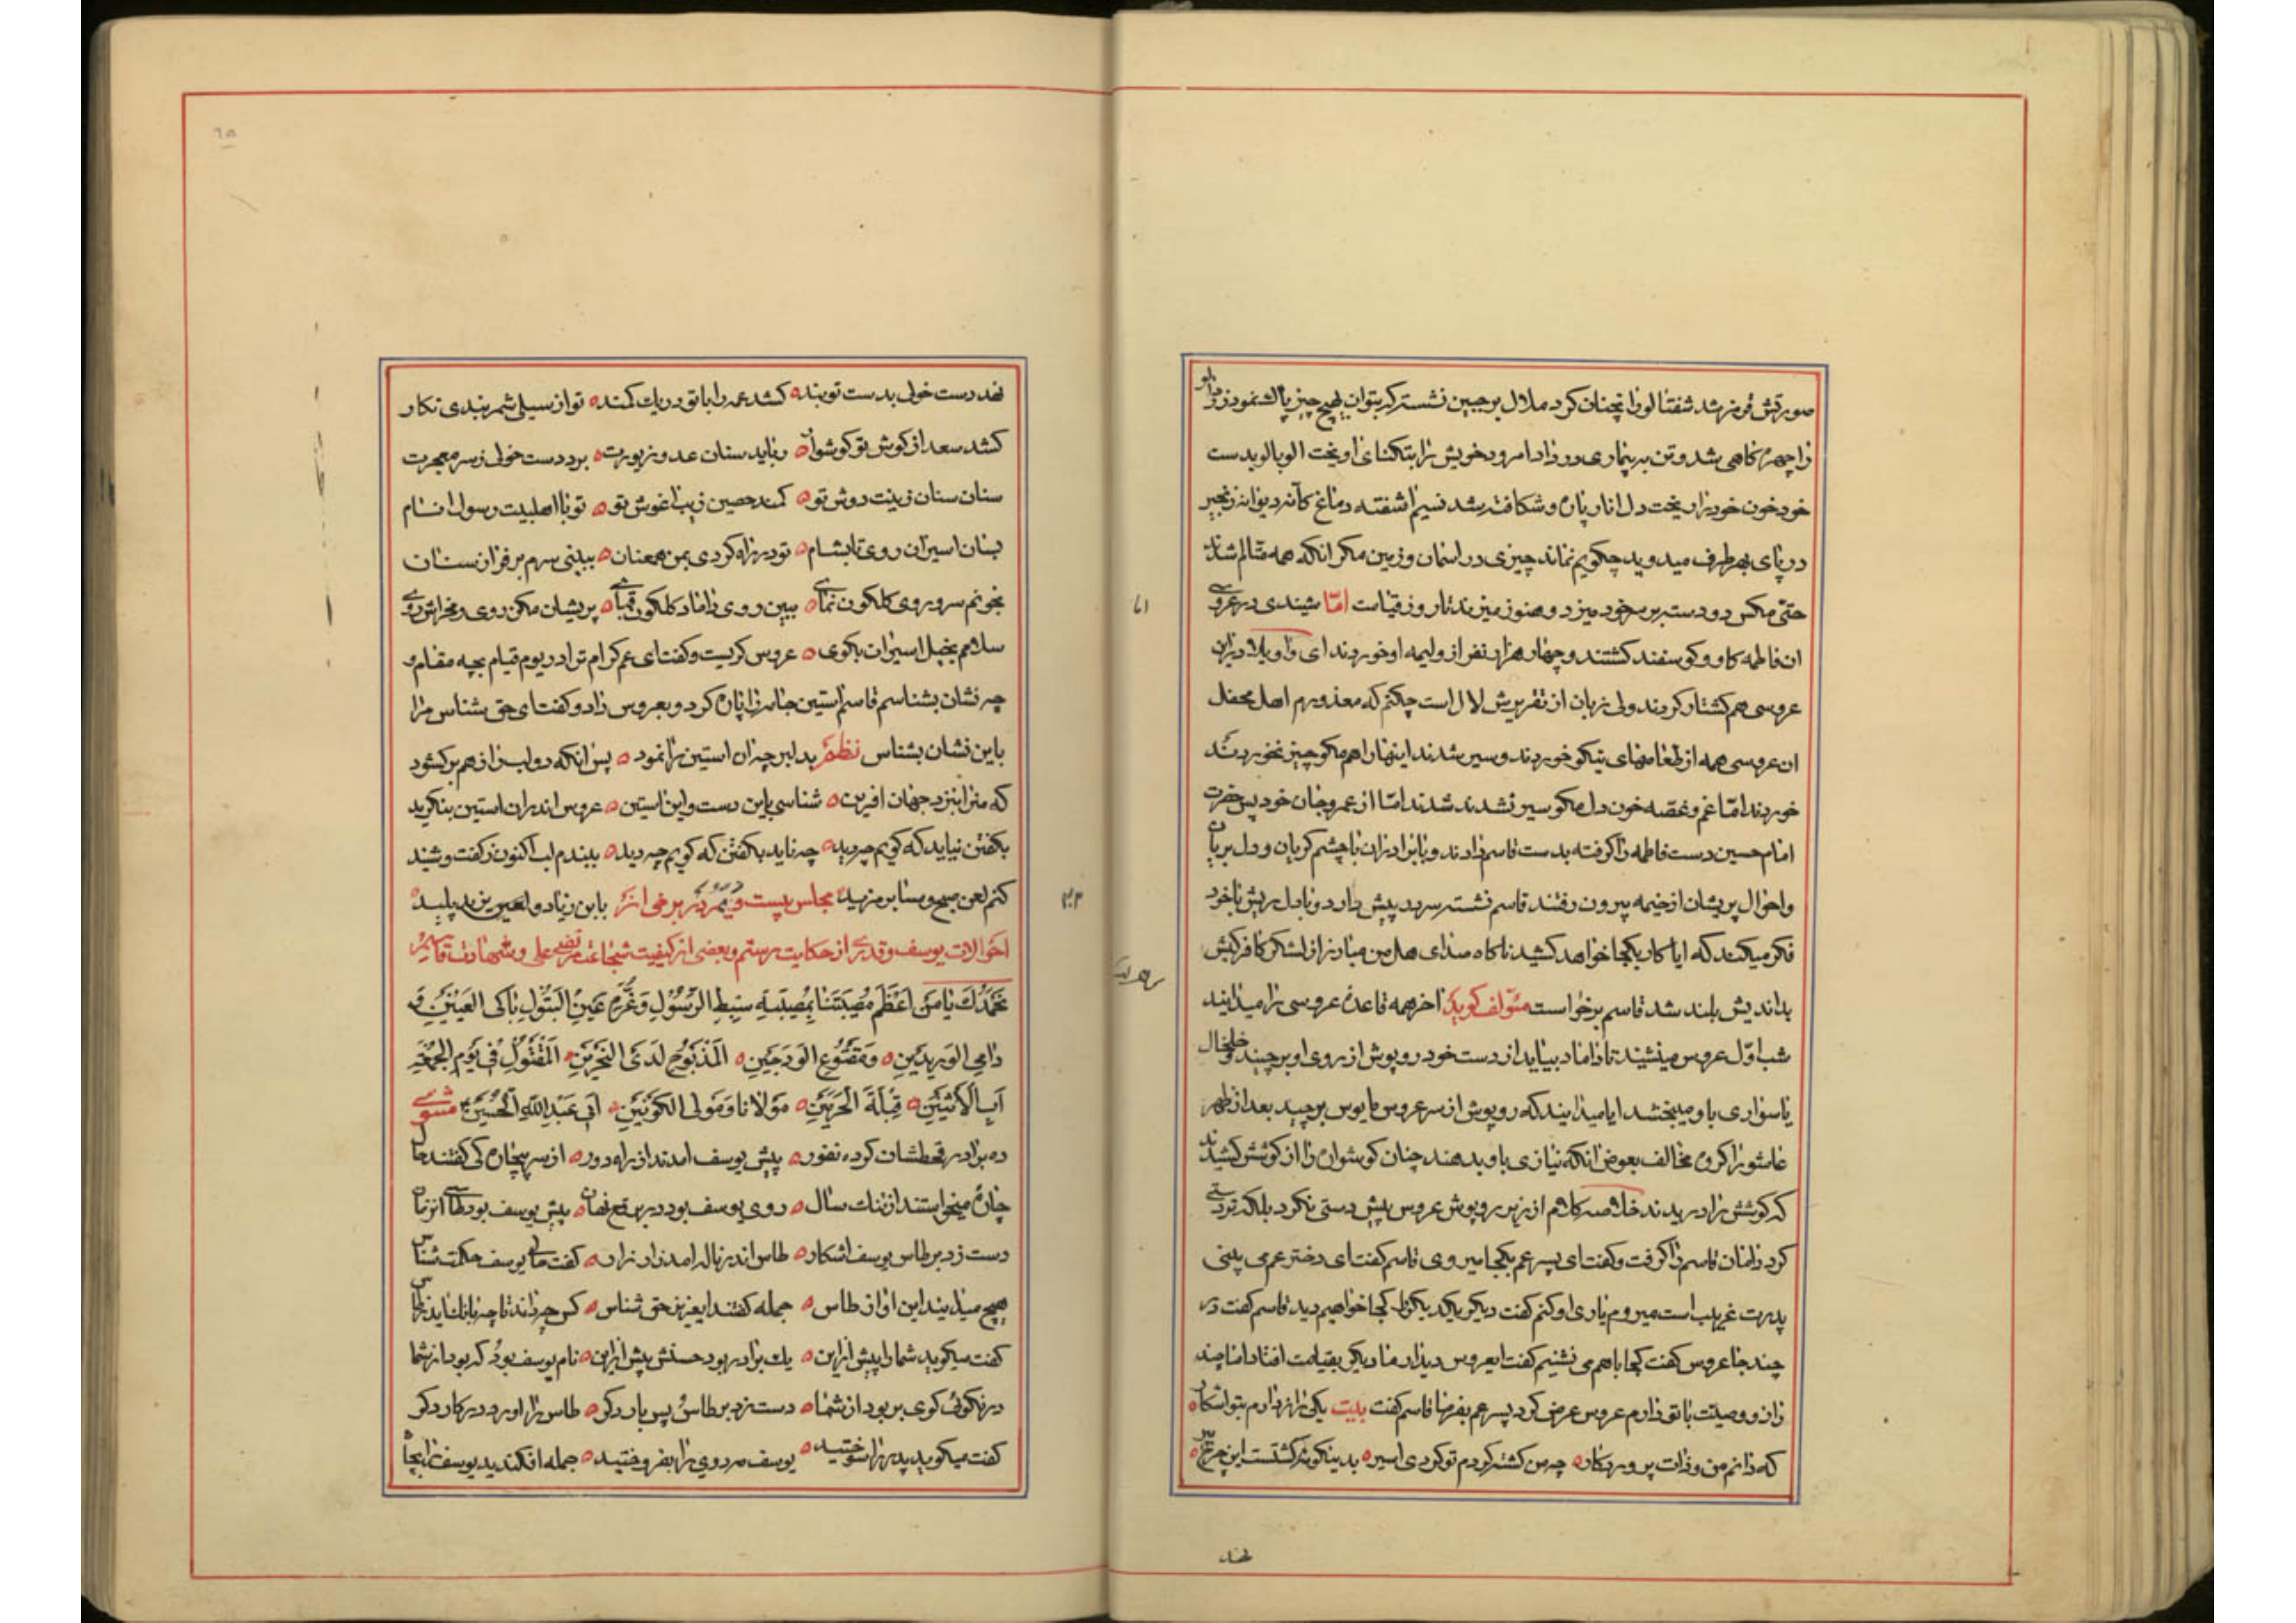 صورتش قرمز شد شفتالو را نچنان کرد ملال بر جبین نشست که بتوان هیچ چیز پاک نمود زردآلو
را چهره کاهی شد و تن به بیماری در داد امرود خویش را بتکنای اویخت الوبالو بدست
خود خون خود بریخت دل انار پاره و شکافته شد نسیم اشفته دماغ کآنه دیوانه زنجیر
در پای بهر طرف میدوید چکویم نماند چیزی در اسمان و زمین مکر انکه همه متالم شدند
حتی مکس دو دست بر سر خود میزد و هنوز میزند تا روز قیامت امّا شنیدی در عروسی
ان فاطمه کاو و کوسفند کشتند و چهار هزار نفر از ولیمه او خوردند ای واویلا در این
عروسی هم کشتار کردند ولی زبان از تقریرش لال است چکنم که معذورم اهل محفل
ان عروسی همه از طعامهای نیکو خوردند و سیر شدند اینها را هم مکو چیز نخوردند
خوردند امّا غم و غصه خون دل مکو سیر نشدند شدند امّا از عمر و جان خود پس حضرت
امام حسین دست فاطمه را کرفته بدست قاسم دادند و با برادران با چشم کریان و دل بریان
و احوال پریشان از خیمه بیرون رفتند قاسم نشسته سر بد پیش دارد و با دل ریش با خود
فکر میکند که ایا کار بکجا خواهد کشید ناکاه صدای هل من مبارز از لشکر کافر کیش
بداندیش بلند شد قاسم برخواست مؤلف کوید اخر همه قاعده عروسی را میدانید
شب اوّل عروس مینشیند تا داماد بیاید از دست خود روپوش از روی او برچیند و خلخال
یا سواری باو میبخشد ایا میدانید که روپوش از سر عروس مایوس برچید بعد از ظهر
عاشورا کروه مخالف بعوض انکه نیازی باو بدهند چنان کوشواره را از کوشش کشیدند
که کوشش را دریدند خلاصه کلام از زیر روپوش عروس پیش دستی نکرد بلکه تردستی
کرد دامان قاسم را کرفت و کفت ای پسر عم بکجا میروی قاسم کفت ای دختر عم می بینی
پدرت غریب است میروم یاری او کنم کفت دیکر یکدیکر را کجا خواهیم دید قاسم کفت در
چند جا عروس کفت کجا باهم می نشینیم کفت ایعروس دیدار ما دیکر بقیامت افتاد اما چند
راز و وصیت با تو دارم عروس عرض کرد پسر عم بفرما قاسم کفت بیت یکی راز دارم بتو اشکار
که دانم من و ذات پروردکار چو من کشته کردم تو کردی اسیر بدینکونه کشتست این چرخ پیر
نهد
نهد دست خولی بدست تو بند کشد عمه را با تو در یک کمند تو از سیلی شمر بندی نکار
کشد سعد از کوش تو کوشوار رباید سنان عدو زیورت برد دست خولی ز سر معجرت
سنان سنان زینت دوش تو کمند حصین زیب اغوش تو تو با اهلبیت رسول انام
بسان اسیران روی تا بشام تو در راه کردی بمن همعنان ببینی سرم بر فراز سنان
بخونم سر و روی کلکون نمای ببین روی داماد کلکون قبای پریشان مکن روی و مخراش روی
سلامم بخیل اسیران بکوی عروس کریست و کفت ای عم کرام ترا در یوم قیام بچه مقام و
چه نشان بشناسم قاسم استین جامه را پاره کرد و بعروس داد و کفت ای حق بشناس مرا
باین نشان بشناس نظم بدلبر چه ان استین را نمود پس انکه دو لب را ز هم بر کشود
که مرا بنزد جهان افرین شناسی باین دست و این استین عروس اندران استین بنکرید
بکفتن نیاید که کویم چه دید چه ناید بکفتن که کویم چه دید ببندم لب اکنون ز کفت و شنید
کنم لعن صبح و مسا بر مزید مجلس بیست و یم در برخی از بابن زیاد و لعین یزید پلید
احوالات یوسف و قدری از حکایت رستم و بعضی از کیفیت شجاعت مرتضی علی و شهادت قاسم
نَحْمَدُكَ یا مَنْ اَعْظَمَ مُصیبَتَنا بِمُصیبَةِ سِبْطِ الرَّسُولِ وَ عَینِ البَتُولِ باکی العَینَینِ
دامِی الوَریدَینِ وَمَقْطُوعِ الوَدَجَینِ اَلْمَذبُوحِ لَدَی النَّحْرَینِ اَلْمَقْتُولِ فی یَومِ الجُمعَةِ
قِبْلَةِ الْحَرَمَینِ مَوْلانا وَ مَولَی الکَونَینِ اَبی عَبْدِاللهِ الْحُسَین مثنوی
ده برادر قحطشان کرده نفور پیش یوسف امدند از راه دور از سر بیچارکی کفتند حال
چاره میخواستند از تنک سال روی یوسف بود در برقع نهان پیش یوسف بود طاسی انزمان
دست زد بر طاس یوسف اشکار طاس اندر ناله امد زار زار کفت حالی یوسف حکمت شناس
هیچ میدانید این اواز طاس جمله کفتند ایعزیز حق شناس کس چه داند تا چه بانک اید ز طاس
کفت میکوید شما را پیش ازاین یک برادر بود حسنش بیش ازاین نام یوسف بود که بود از شما
در نکوئی کوی بر بود از شما دست زد بر طاس پس بار دکر طاس را اورد در کار دکر
کفت میکوید پدر را سوختید یوسف مه روی را بفروختید جمله افکندید یوسف را بچاه